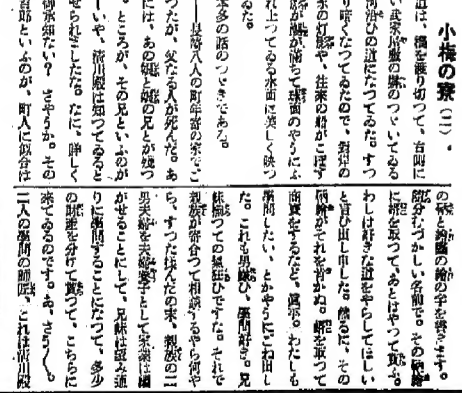 小梅の寮（二）
道は、橋を渡り切つて、右に
い武家屋敷の塀のつゞいてゐる
河沿ひの道になつてゐた。すつ
り暗くなつてゐたので、對岸の
家の灯影や、往來の船がこぼす
れ上つてゐる水面に美しく映つ
ゐた。
本多の話のつゞきである。
――長崎八人の町年寄の家でご
つたが、父なる人が死んだ。あ
には、あの娘と娘の兄とが殘つ
。ところが、その兄といふのが
ーいや、清川殿は知つてゐると
せられましたな。なに、詳しく
御承知ない？　さやうか。その
百郎といふのが、町人に似合は
の柄と繪の字を書きます。
隨分むづかしい名前で。その
に婿を取つて、あとはやつて貰ふ。
わしは好きな道をやらしてほしい
と言ひ出し申した。然るに、その
がこれを肯かぬ。婿を取つて
商賣をするなど、眞平。わたしも
學問したい、とかやうにごね出し
た。これも男嫌ひ、學問好き。兄
妹揃つての風狂ひですな。それで
親族が寄合つて相談するやら何や
ら、すつたもんだの末、親族の一
男夫婦を夫婦養子として家業は繼
がせることにして、兄妹は望み通
りに學問することになつて、多少
の財産を分けて貰つて、こちらに
來てゐるのです。あ、さう／＼。
二人の學問の師匠、これは清川殿